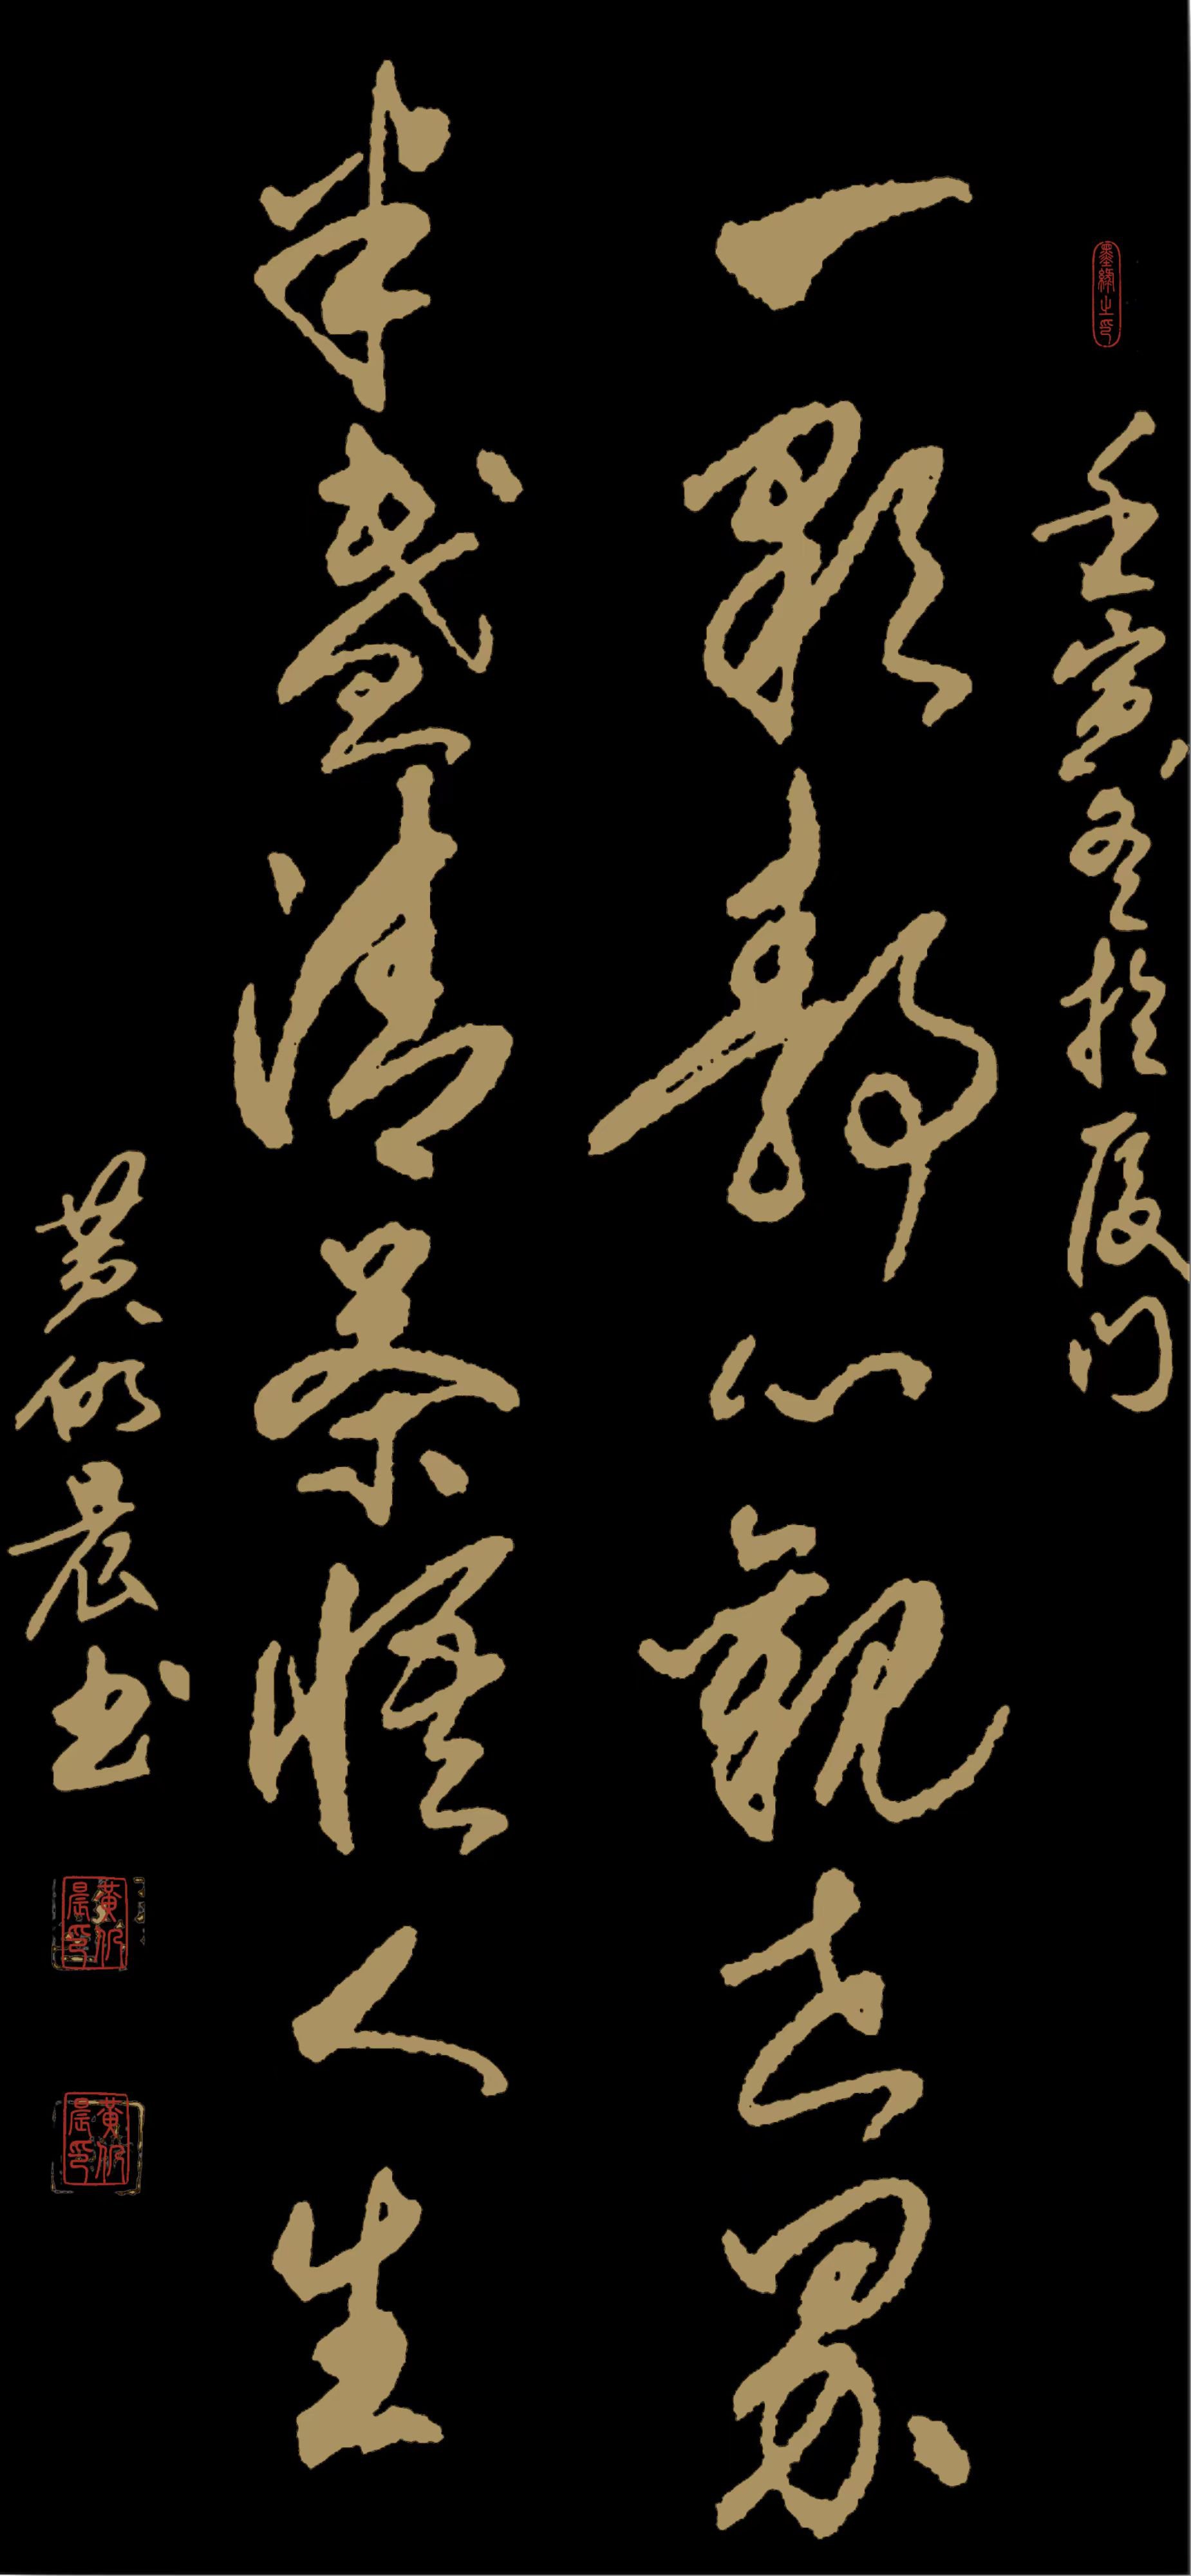 墨缘之印
壬寅冬於厦门
一颗静心观世界
半盏清茶悟人生
黄仰晨书
黄仰晨印
黄仰晨印